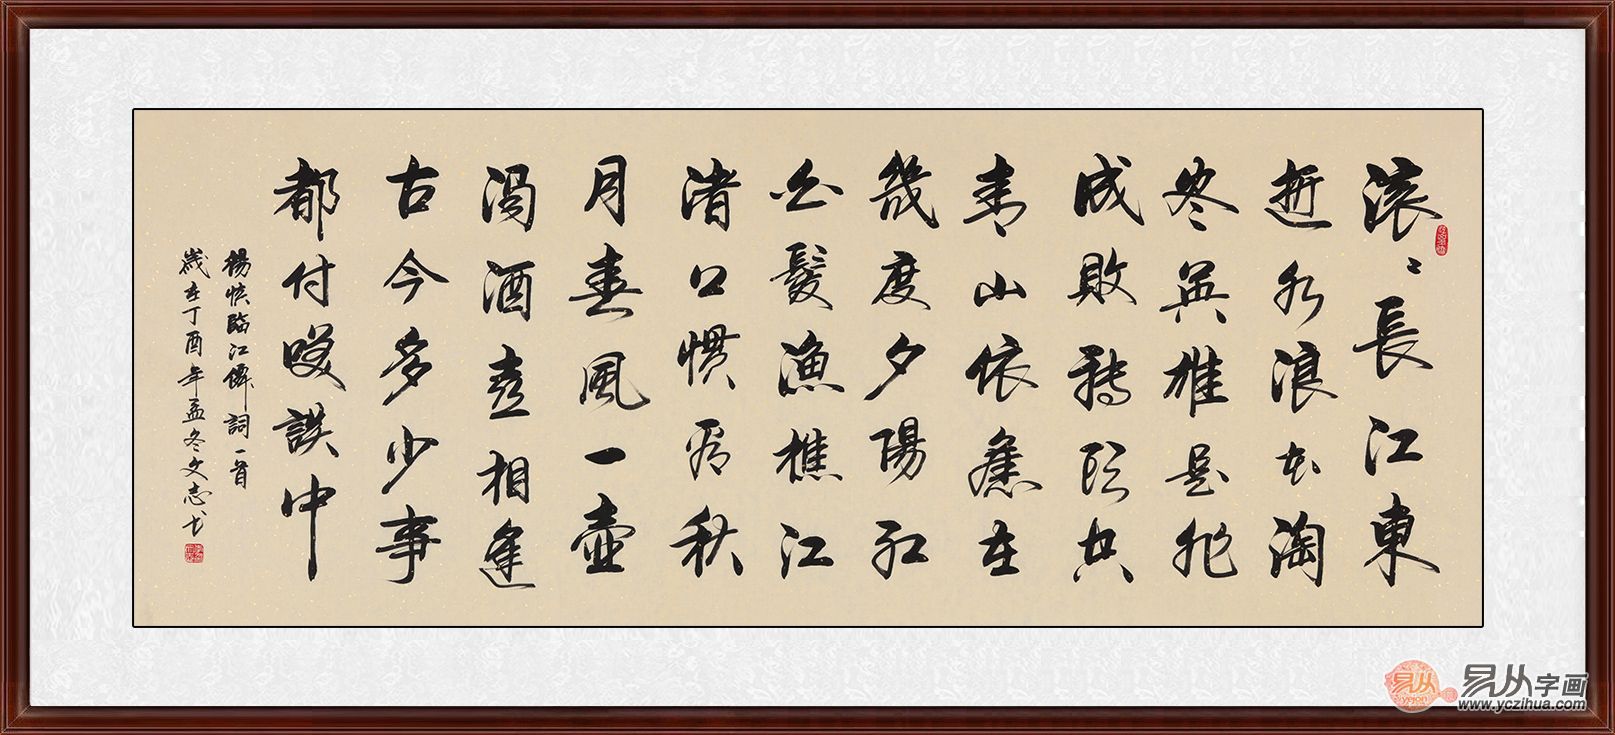 滚〻長江東
逝水浪花淘
尽英雄是非
成敗轉頭空
青山依舊在
幾度夕陽紅
白髮漁樵江
渚口慣看秋
月春風一壺
濁酒喜相逢
古今多少事
都付咲談中
楊慎臨江僊詞一首
歲在丁酉年孟冬文志书
易从字画
yejon
www.yczihua.com